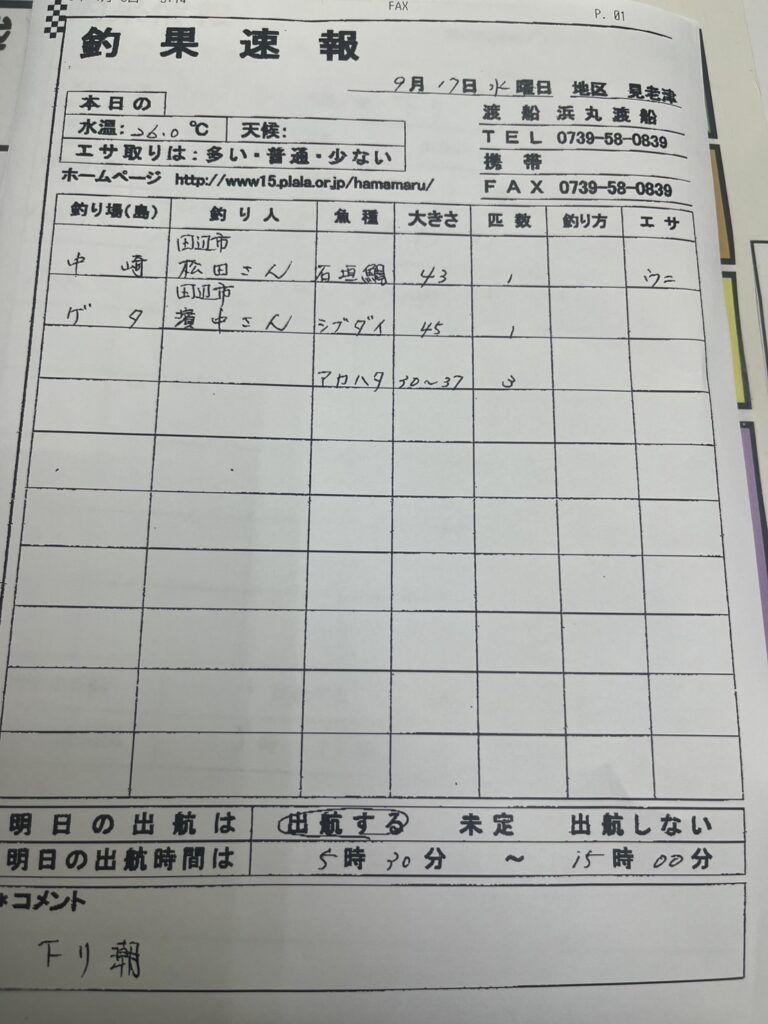 FAX P. 01
釣果速報
9月17日水曜日 地区 見老津
本日の
水温:26.0℃ 天候:
エサ取りは:多い・普通・少ない
渡船 浜丸渡船
TEL 0739-58-0839
携帯
FAX 0739-58-0839
ホームページ http://www15.plala.or.jp/hamamaru/
釣り場(島) 釣り人 魚種 大きさ 匹数 釣り方 エサ
田辺市
中崎 松田さん 石垣鯛 43 1 ウニ
田辺市
ゲタ 濱中さん シブダイ 45 1
アカハタ 30~37 3
明日の出航は 出航する 未定 出航しない
明日の出航時間は 5時30分 ~ 15時00分
*コメント
下り潮